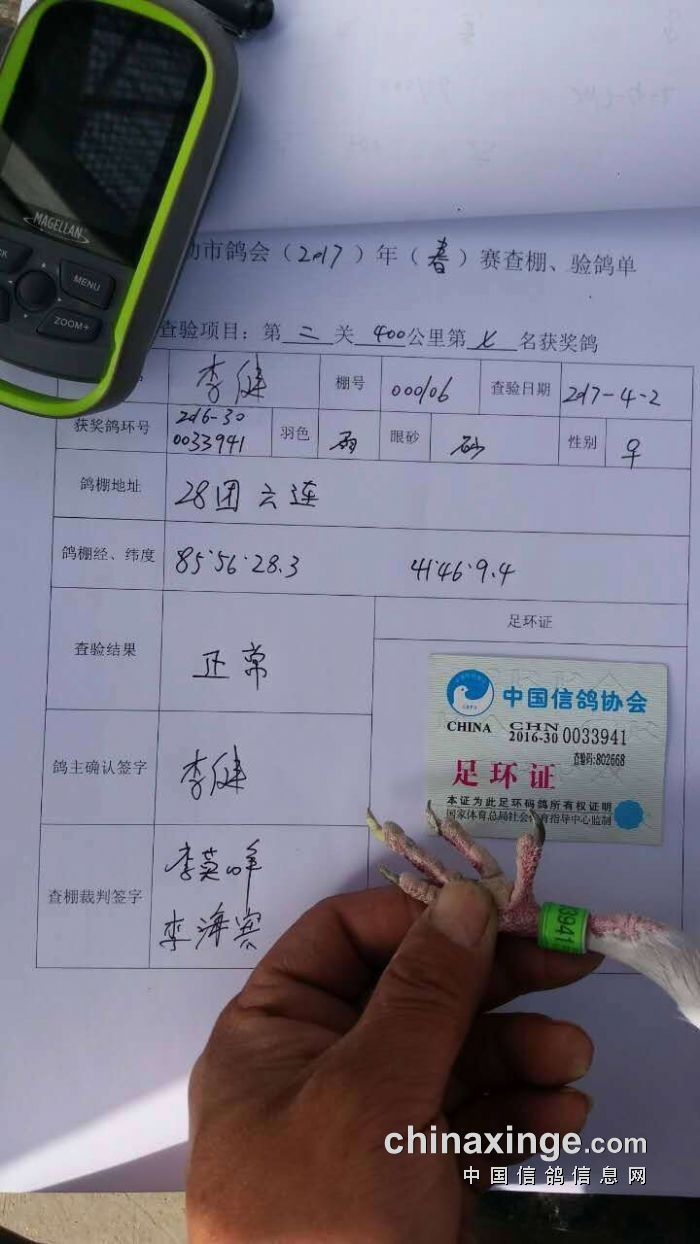 MAGELLAN
MENU
ZOOM+
市鸽会（2017）年（春）赛查棚、验鸽单
查验项目：第二关400公里第七名获奖鸽
李健 棚号 000106 查验日期 2017-4-2
获奖鸽环号 2016-30 0033941 羽色 雨 眼砂 砂 性别 ♀
鸽棚地址 28团六连
鸽棚经、纬度 85·56·28.3 41·46·9.4
查验结果 正常
足环证
中国信鸽协会
CHINA CHN
2016-30 0033941
查验码:802668
足环证
本证为此足环码鸽所有权证明
国家体育总局社会体育指导中心监制
鸽主确认签字 李健
查棚裁判签字 李英
李海赛
3941
chinaxinge.com
中国信鸽信息网